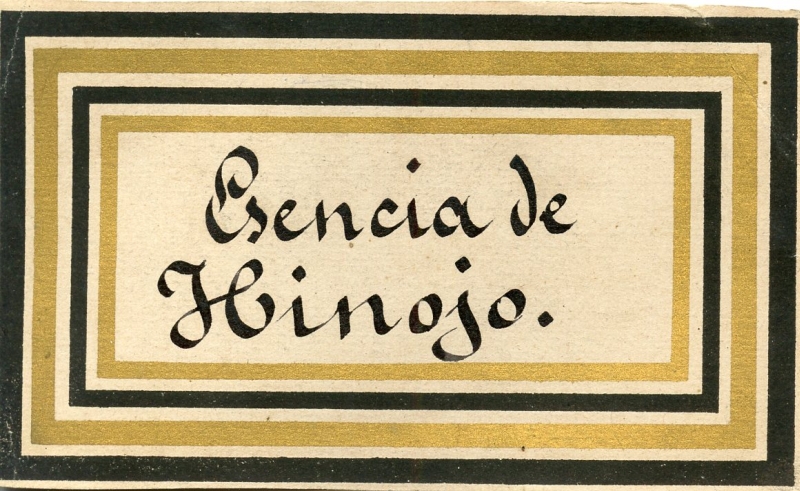 Esencia de
Hinojo.